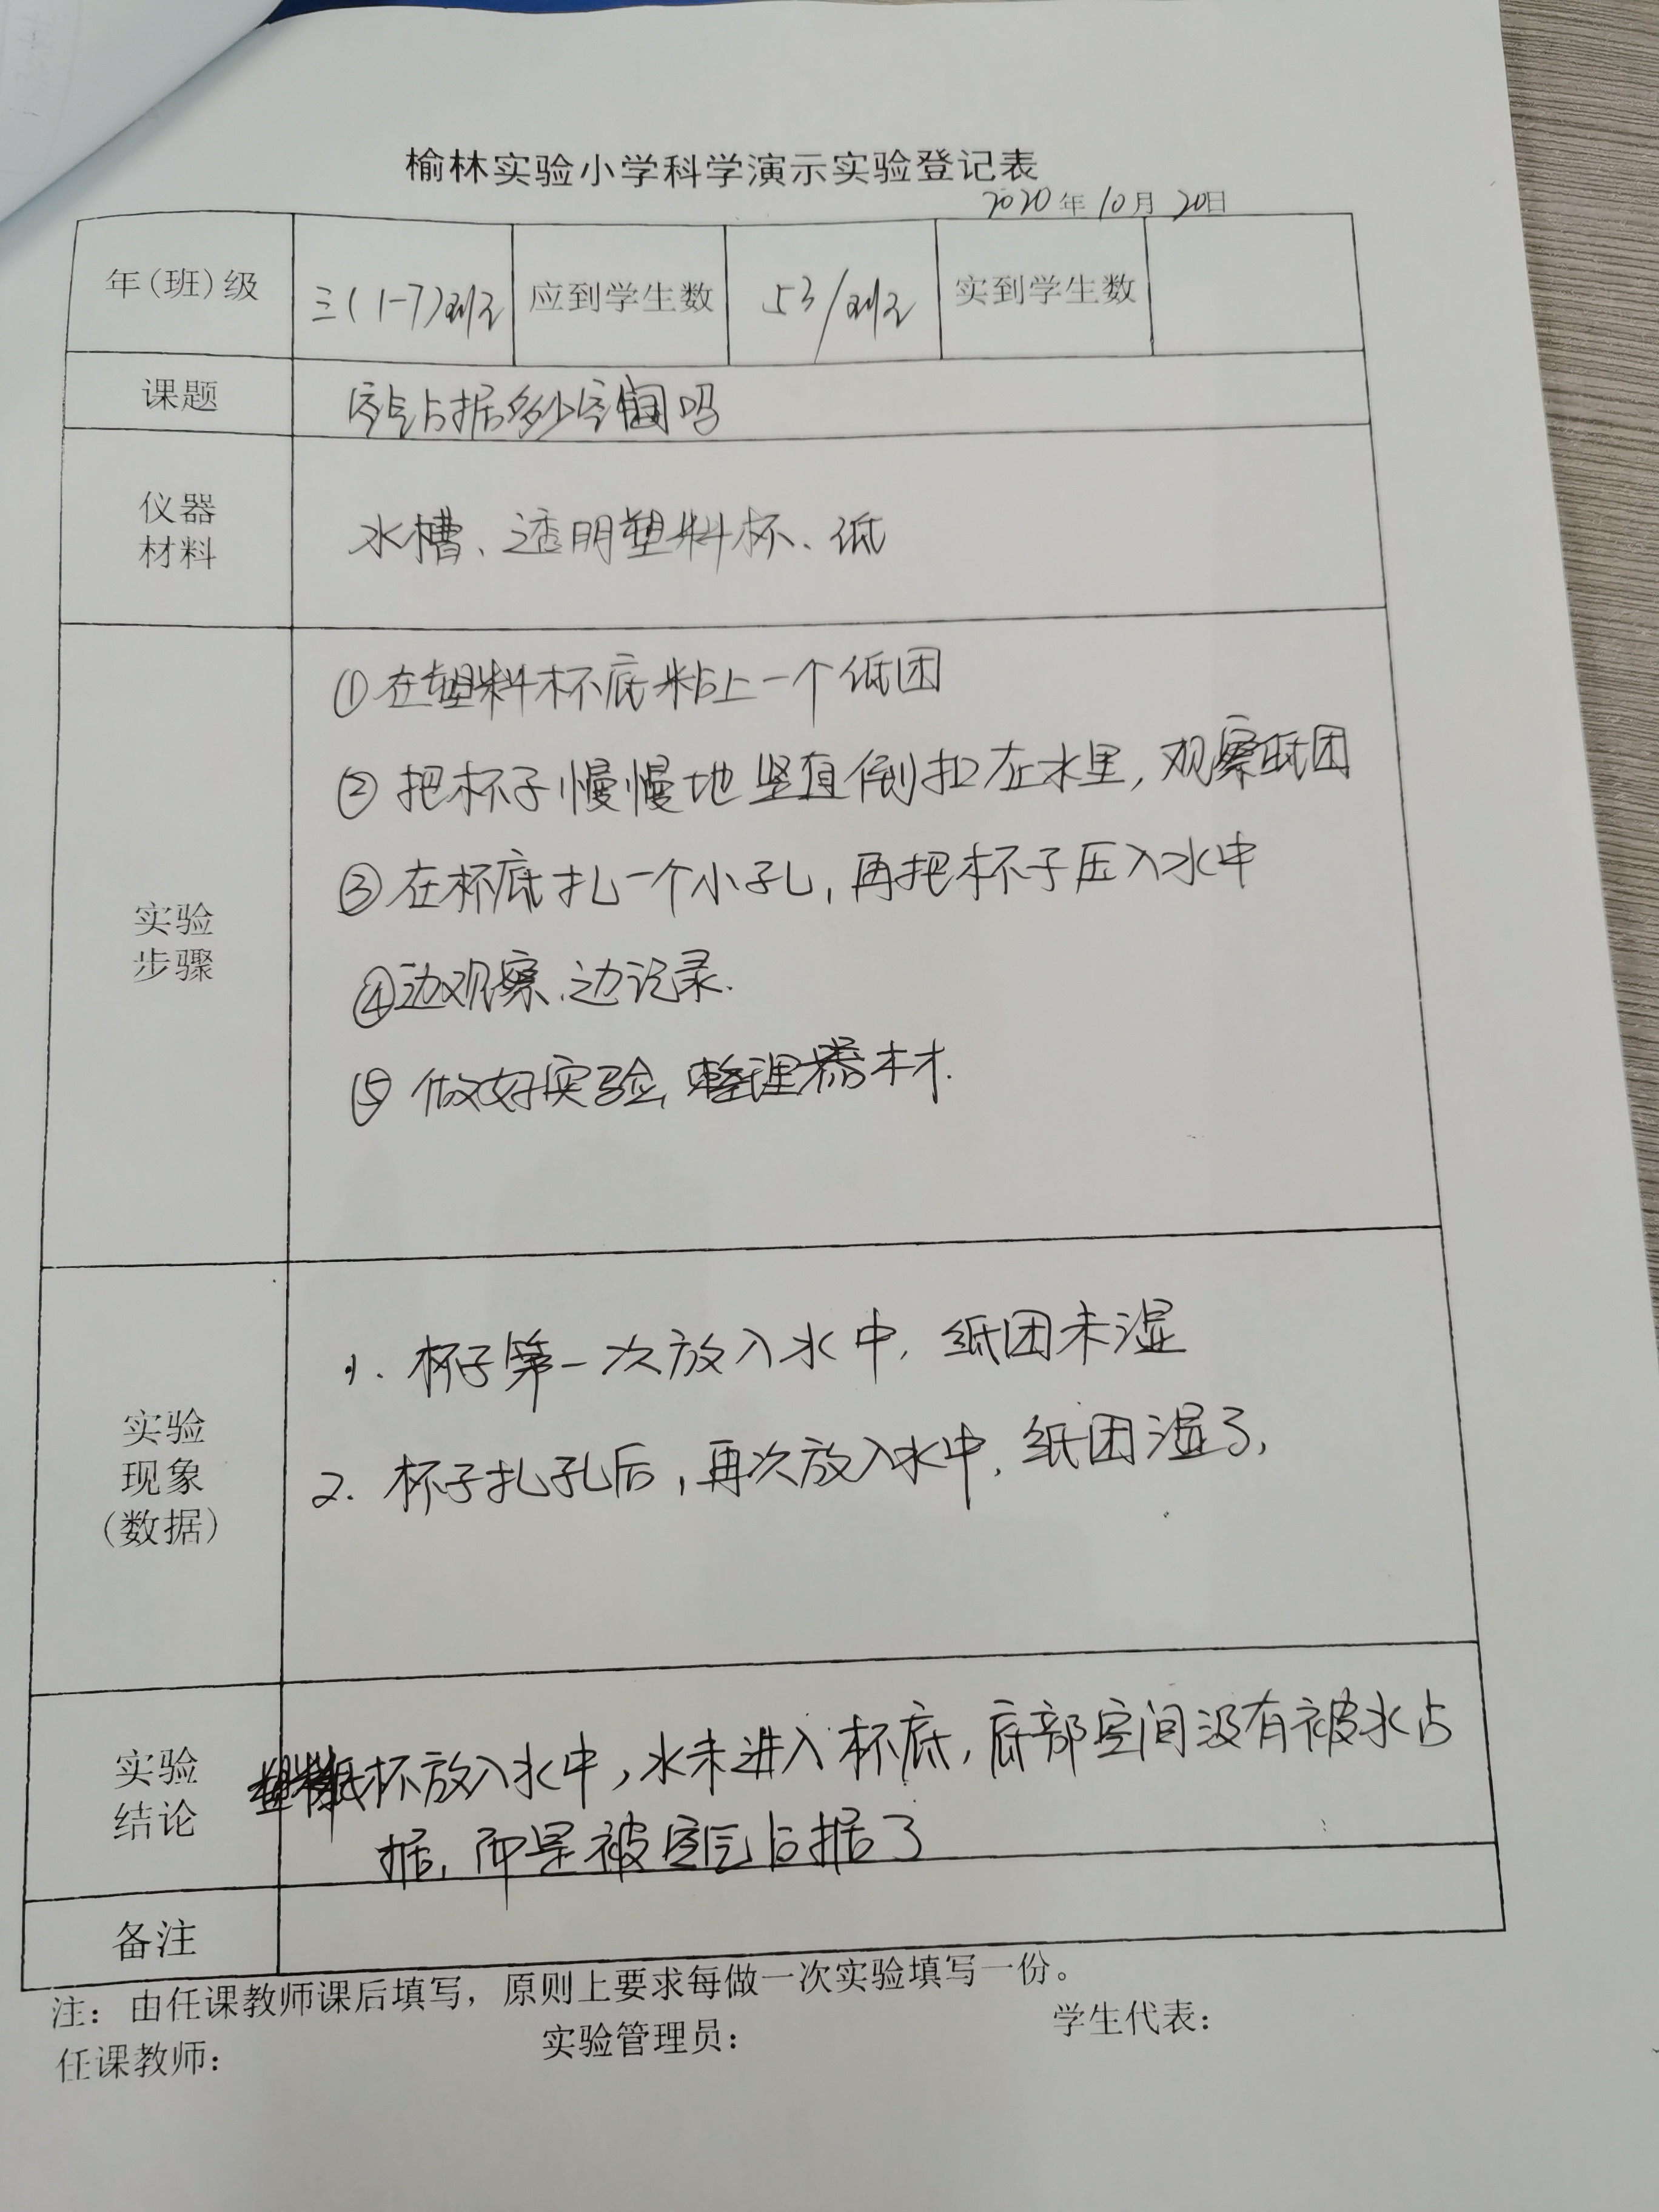 榆林实验小学科学演示实验登记表
2020年10月20日
年(班)级 三(1-7)班 应到学生数 53/班 实到学生数
课题 空气占据多少空间吗
仪器
材料
水槽、透明塑料杯、纸
实验
步骤
①在塑料杯底粘上一个纸团
②把杯子慢慢地竖直倒扣在水里,观察纸团
③在杯底扎一个小孔,再把杯子压入水中
④边观察、边记录.
⑤做好实验,整理器材.
实验
现象
(数据)
1.杯子第一次放入水中,纸团未湿
2.杯子扎孔后,再次放入水中,纸团湿了,
实验
结论
杯放入水中,水未进入杯底,底部空间没有被水占
据,而是被空气占据了
备注
注:由任课教师课后填写,原则上要求每做一次实验填写一份。
任课教师: 实验管理员: 学生代表: